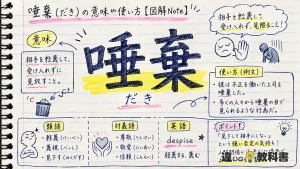 唾棄(だき)の意味や使い方【図解Note】
意味
相手を軽蔑して、
受け入れずに
見放すこと。
唾棄
だき
相手を軽蔑して
受け入れず、見捨てること!
使い方(例文)
彼は不正を働いた上司を
唾棄した。
多くの人々から唾棄の目で
見られるような行為だ。
類語
・軽蔑(けいべつ)
・蔑視(べっし)
・見下す(みくだす)
対義語
・尊敬(そんけい)
・敬愛(けいあい)
・信頼(しんらい)
英語
despise
軽蔑する、蔑む
ポイント!
「見下して相手にしない」
という強い否定の気持ち!
教科書